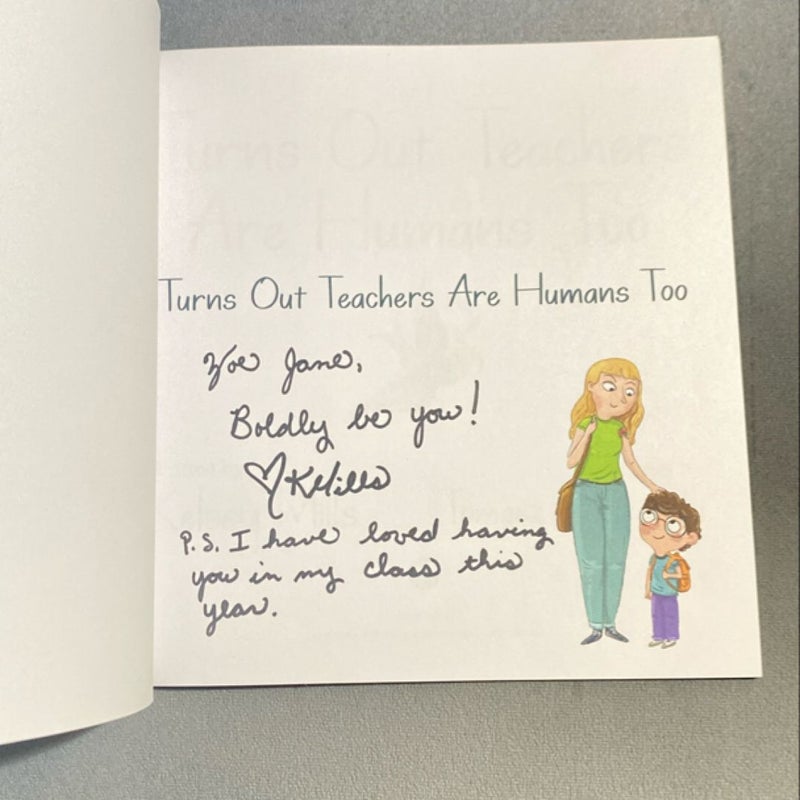 Turns Out Teachers Are Humans Too
Zoe Jane,
Boldly be you!
KMills
P.S. I have loved having
you in my class this
year.